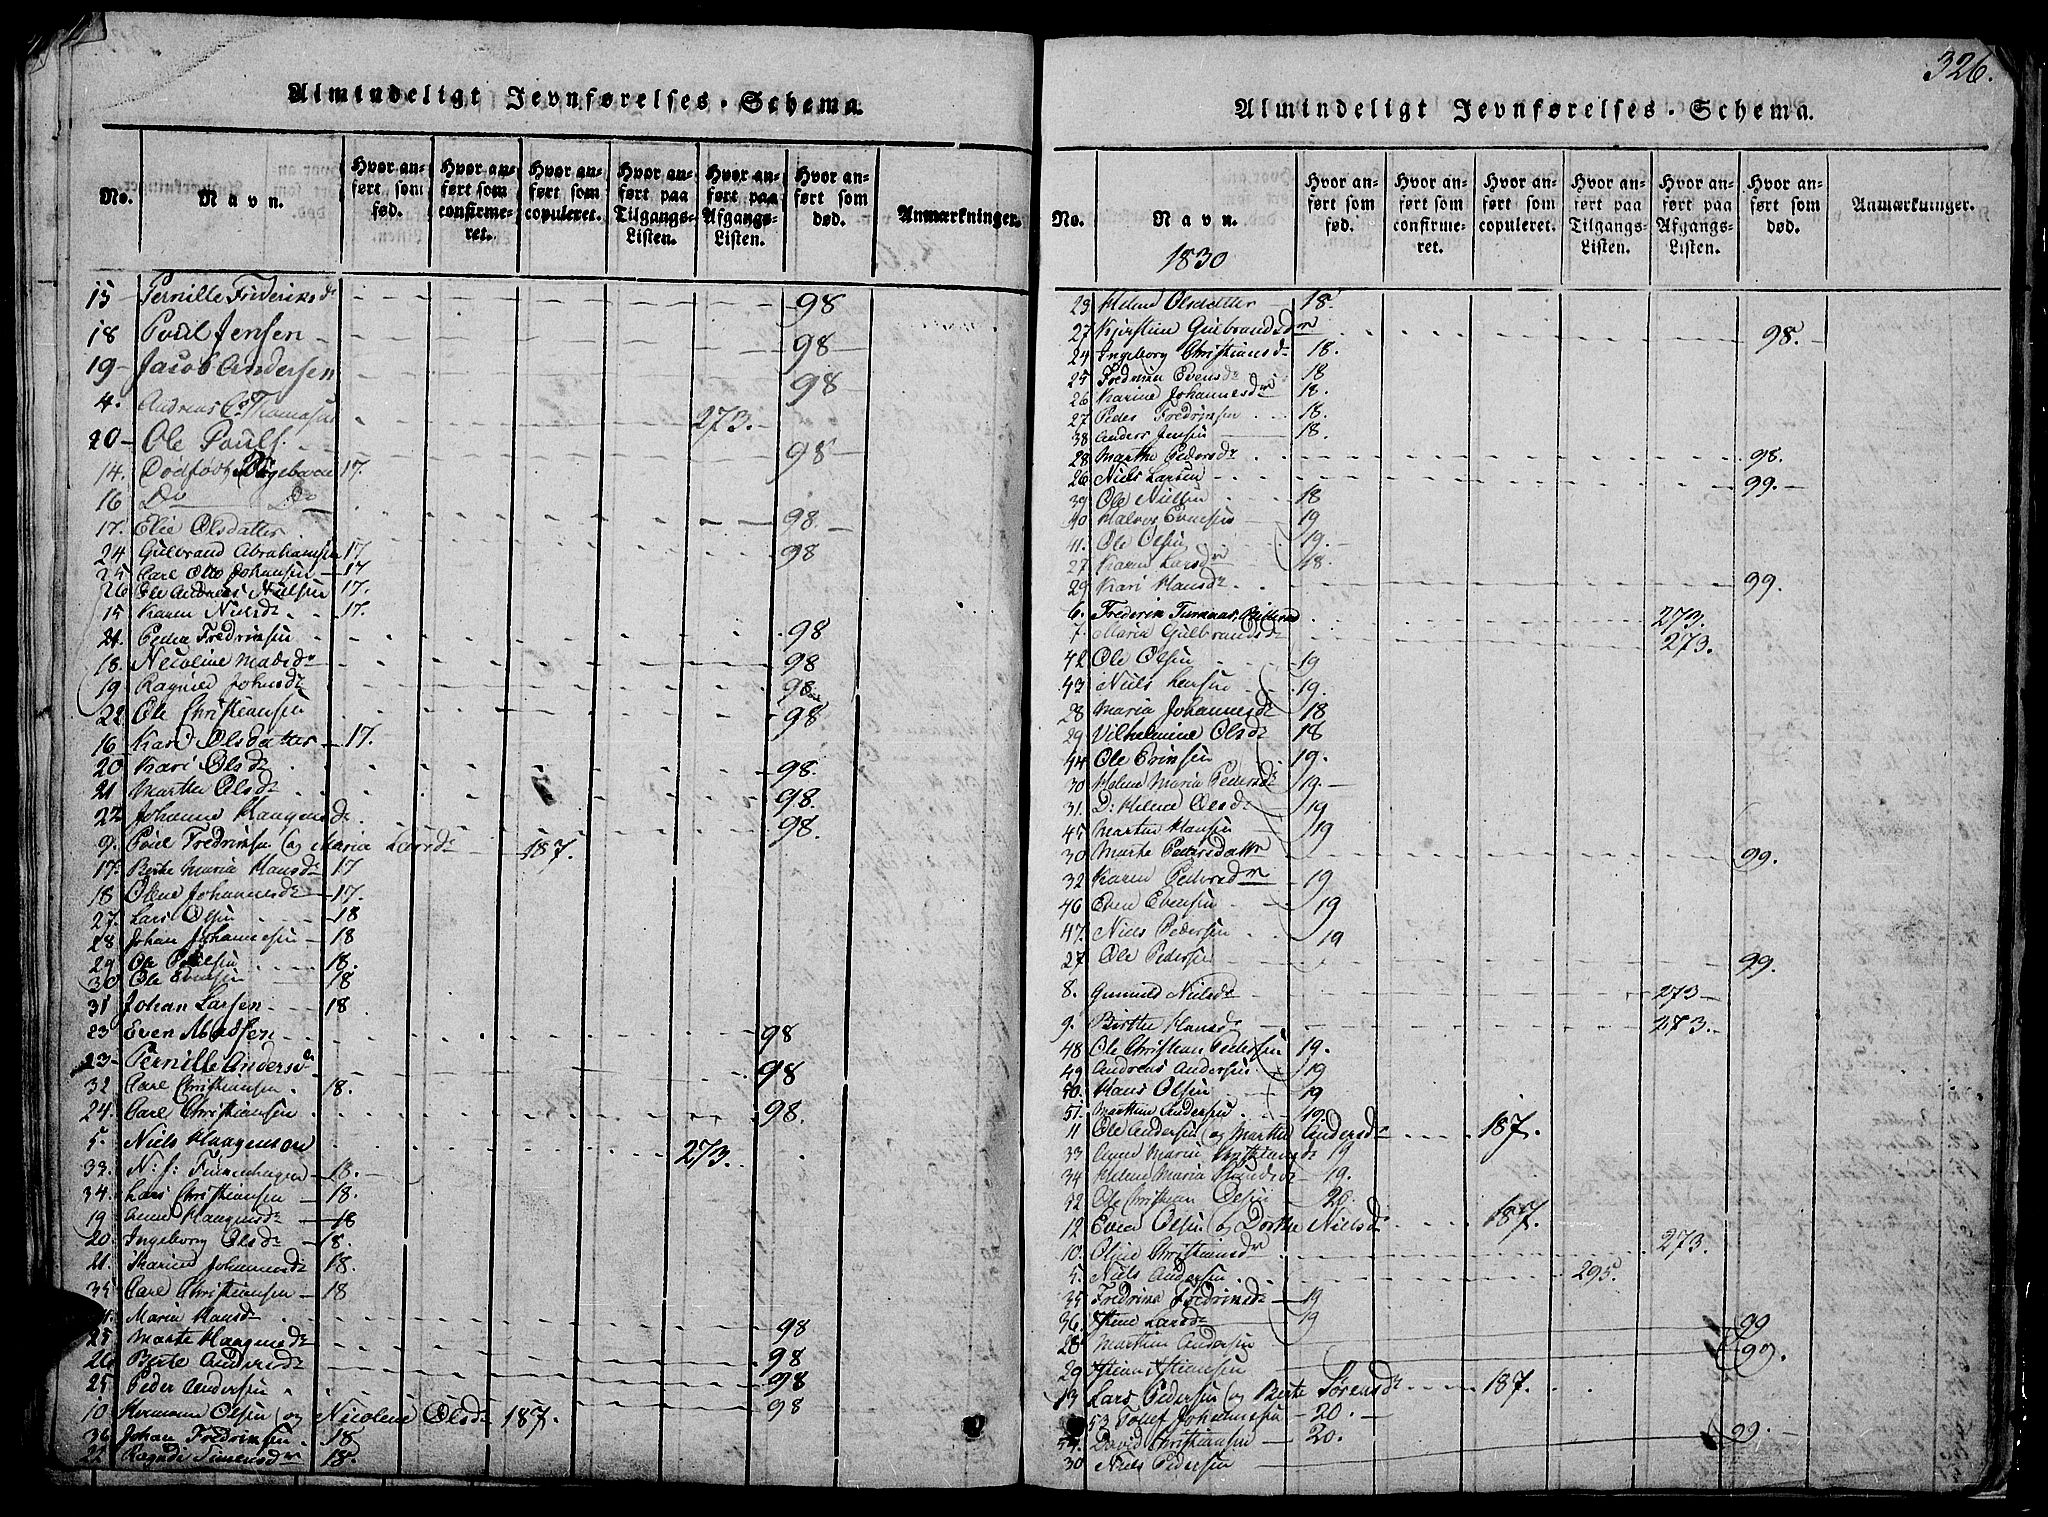 Almindeligt Jevnførelses-Schema.
No.
Navn.
Hvor anført som fød.
Hvor anført som confirmeret.
Hvor anført som copuleret.
Hvor anført paa Tilgangs-Listen.
Hvor anført paa Afgangs-Listen.
Hvor anført som død.
Anmærkninger.
15 Pernille Frederiksdr 98
18 Poul Jensen 98
19 Jacob Andersen 98
4. Andreas C. Thomasen 273.
20 Ole Pouls. 98
14. Dødfødt Pigebarn 17.
16 Do Do
17. Elie Olsdatter 98
24 Gulbrand Abrahamsen 17 98
25 Carl Otto Johansen 17
26 Ole Andreas Nielsen 17.
15 Karen Nielsdr 17.
21. Peder Fredriksen 98
18. Nicoline Madsdr 98
19 Ragnild Johnsdr 98
22 Ole Christiansen 98
16 Kari Olsdatter 17.
20 Kari Olsdr 98.
21 Marthe Olsdr 98.
22 Johanne Haagensdr 98.
9. Poul Fredriksen og Maria Larsdr 187.
17. Birthe Maria Hansdr 17
18 Oline Johannesdr 17.
27. Lars Olsen 18
28 Johan Johannesen 18
29 Ole Poulsen 18.
30 Ole Evensen 18
31 Johan Larsen 18
23 Even Madsen 98
23 Pernille Andersdr 98
32 Carl Christiansen 18.
24. Carl Christiansen 98.
5. Niels Haagensen 273.
33. N: J: Tinnehagen 18.
34. Lars Christiansen 18.
19 Anne Haagensdr 18
20. Ingeborg Olsdr 18.
21. Karine Johannesdr 18.
35 Carl Christiansen 18
Maria Hansdr 98
25 Marthe Haagensdr 98
26 Berte Andersdr 98
25 Peder Andersen 98
10 Hermann Olsen og Nicolene Olsdr 187.
36 Johan Fredriksen 18
22 Ragnild Simensdr 18.
326.
Almindeligt Jevnførelses-Schema.
No.
Navn.
1830
Hvor anført som fød.
Hvor anført som confirmeret.
Hvor anført som copuleret.
Hvor anført paa Tilgangs-Listen.
Hvor anført paa Afgangs-Listen.
Hvor anført som død.
Anmærkninger.
23 Helene Olsdatter 18.
27 Kjerstine Gulbrandsdr 98.
24 Ingeborg Christiansdr 18.
25 Fredrikke Evensdr 18
26 Karine Johannesdr 18.
27 Peder Fredriksen 18.
38 Anders Jensen 18.
28 Marthe Pedersdr 98.
26 Niels Larsen 99.
39 Ole Nielsen 18
40 Halvor Evensen 19
41. Ole Olsen 19.
27 Karen Larsdr 18.
29 Kari Hansdr 99.
6. Frederik 273.
7. Maria Gulbrandsdr 273.
42 Ole Olsen 19
43 Niels Jensen 19.
28 Maria Johannesdr 18
29 Vilhelmine Olsdr 18
44 Ole Eriksen 19.
30 Helene Maria Pedersdr 19.
31. D: Helene Olsdr 19
45 Martin Hansen 19
30 Marthe Pedersdatter 99.
32 Karen Pedersdr 19
46 Even Evensen 19
47. Niels Pedersen 19
27 Ole Pedersen 99.
8. Gunnild Nielsdr 273
9. Birthe Hansdr 273.
48 Ole Christian Pedersen 19.
49 Andreas Andersen 19
50. Hans Olsen 19
51. Martin Andersen 19
11 Ole Andersen og Marthe Andersdr 187.
33 Anne Maria Christiansdr 19
34 Helene Maria 19.
52 Ole Christian Olsen 20.
12 Even Olsen og Dorthe Nielsdr 187.
10. Oline Christiansdr 273.
5. Niels Andersen 295.
35 Fredrikke Fredriksdr 19
36. Stine Larsdr 19
28 Martin Andersen 99
29 Christiansen 99.
13 Lars Pedersen og Berte Sørensdr 187.
53 Tollef Johannesen 20.
54. David Christiansen 20.
30 Niels Pedersen 99.